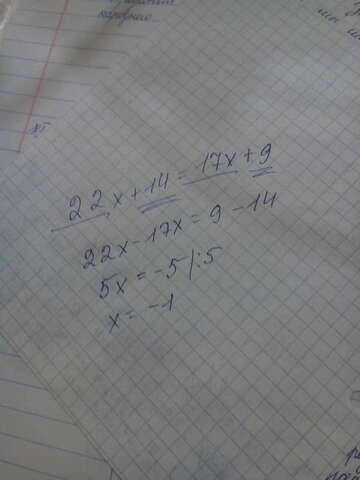 22x + 14 = 17x + 9
22x - 17x = 9 - 14
5x = -5 /:5
x = -1